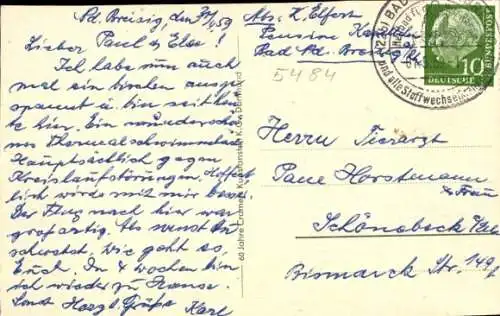 Bd. Breisig, den 30/1.59
Lieber Paul & Else!
Ich habe nun auch
mal ein bischen ausge
spannt u. bin seit heute
hier. Ein wunderschö
nes Thermalschwimmbad
Hauptsächlich gegen
Kreislaufstörungen. Hoffent
lich wirds mit mir besser.
Der Flug nach hier war
großartig. Als wenst Du
schwebst. Wie geht es
Euch. In 4 Wochen bin
ich wieder zu Hause.
Sonst Herzl. Grüße Karl
60 Jahre Cramers Kunstanstalt K.G., Dortmund
Abs. K. Elfert
Pension
Bad Nd. Breisig
5484
BAD
und alle Stoffwechsel
DEUTSCHE
BUNDESPOST
10
Herrn Tierarzt
Paul Horstmann
& Frau
Schönebeck /Elbe
Bismarck Str. 149